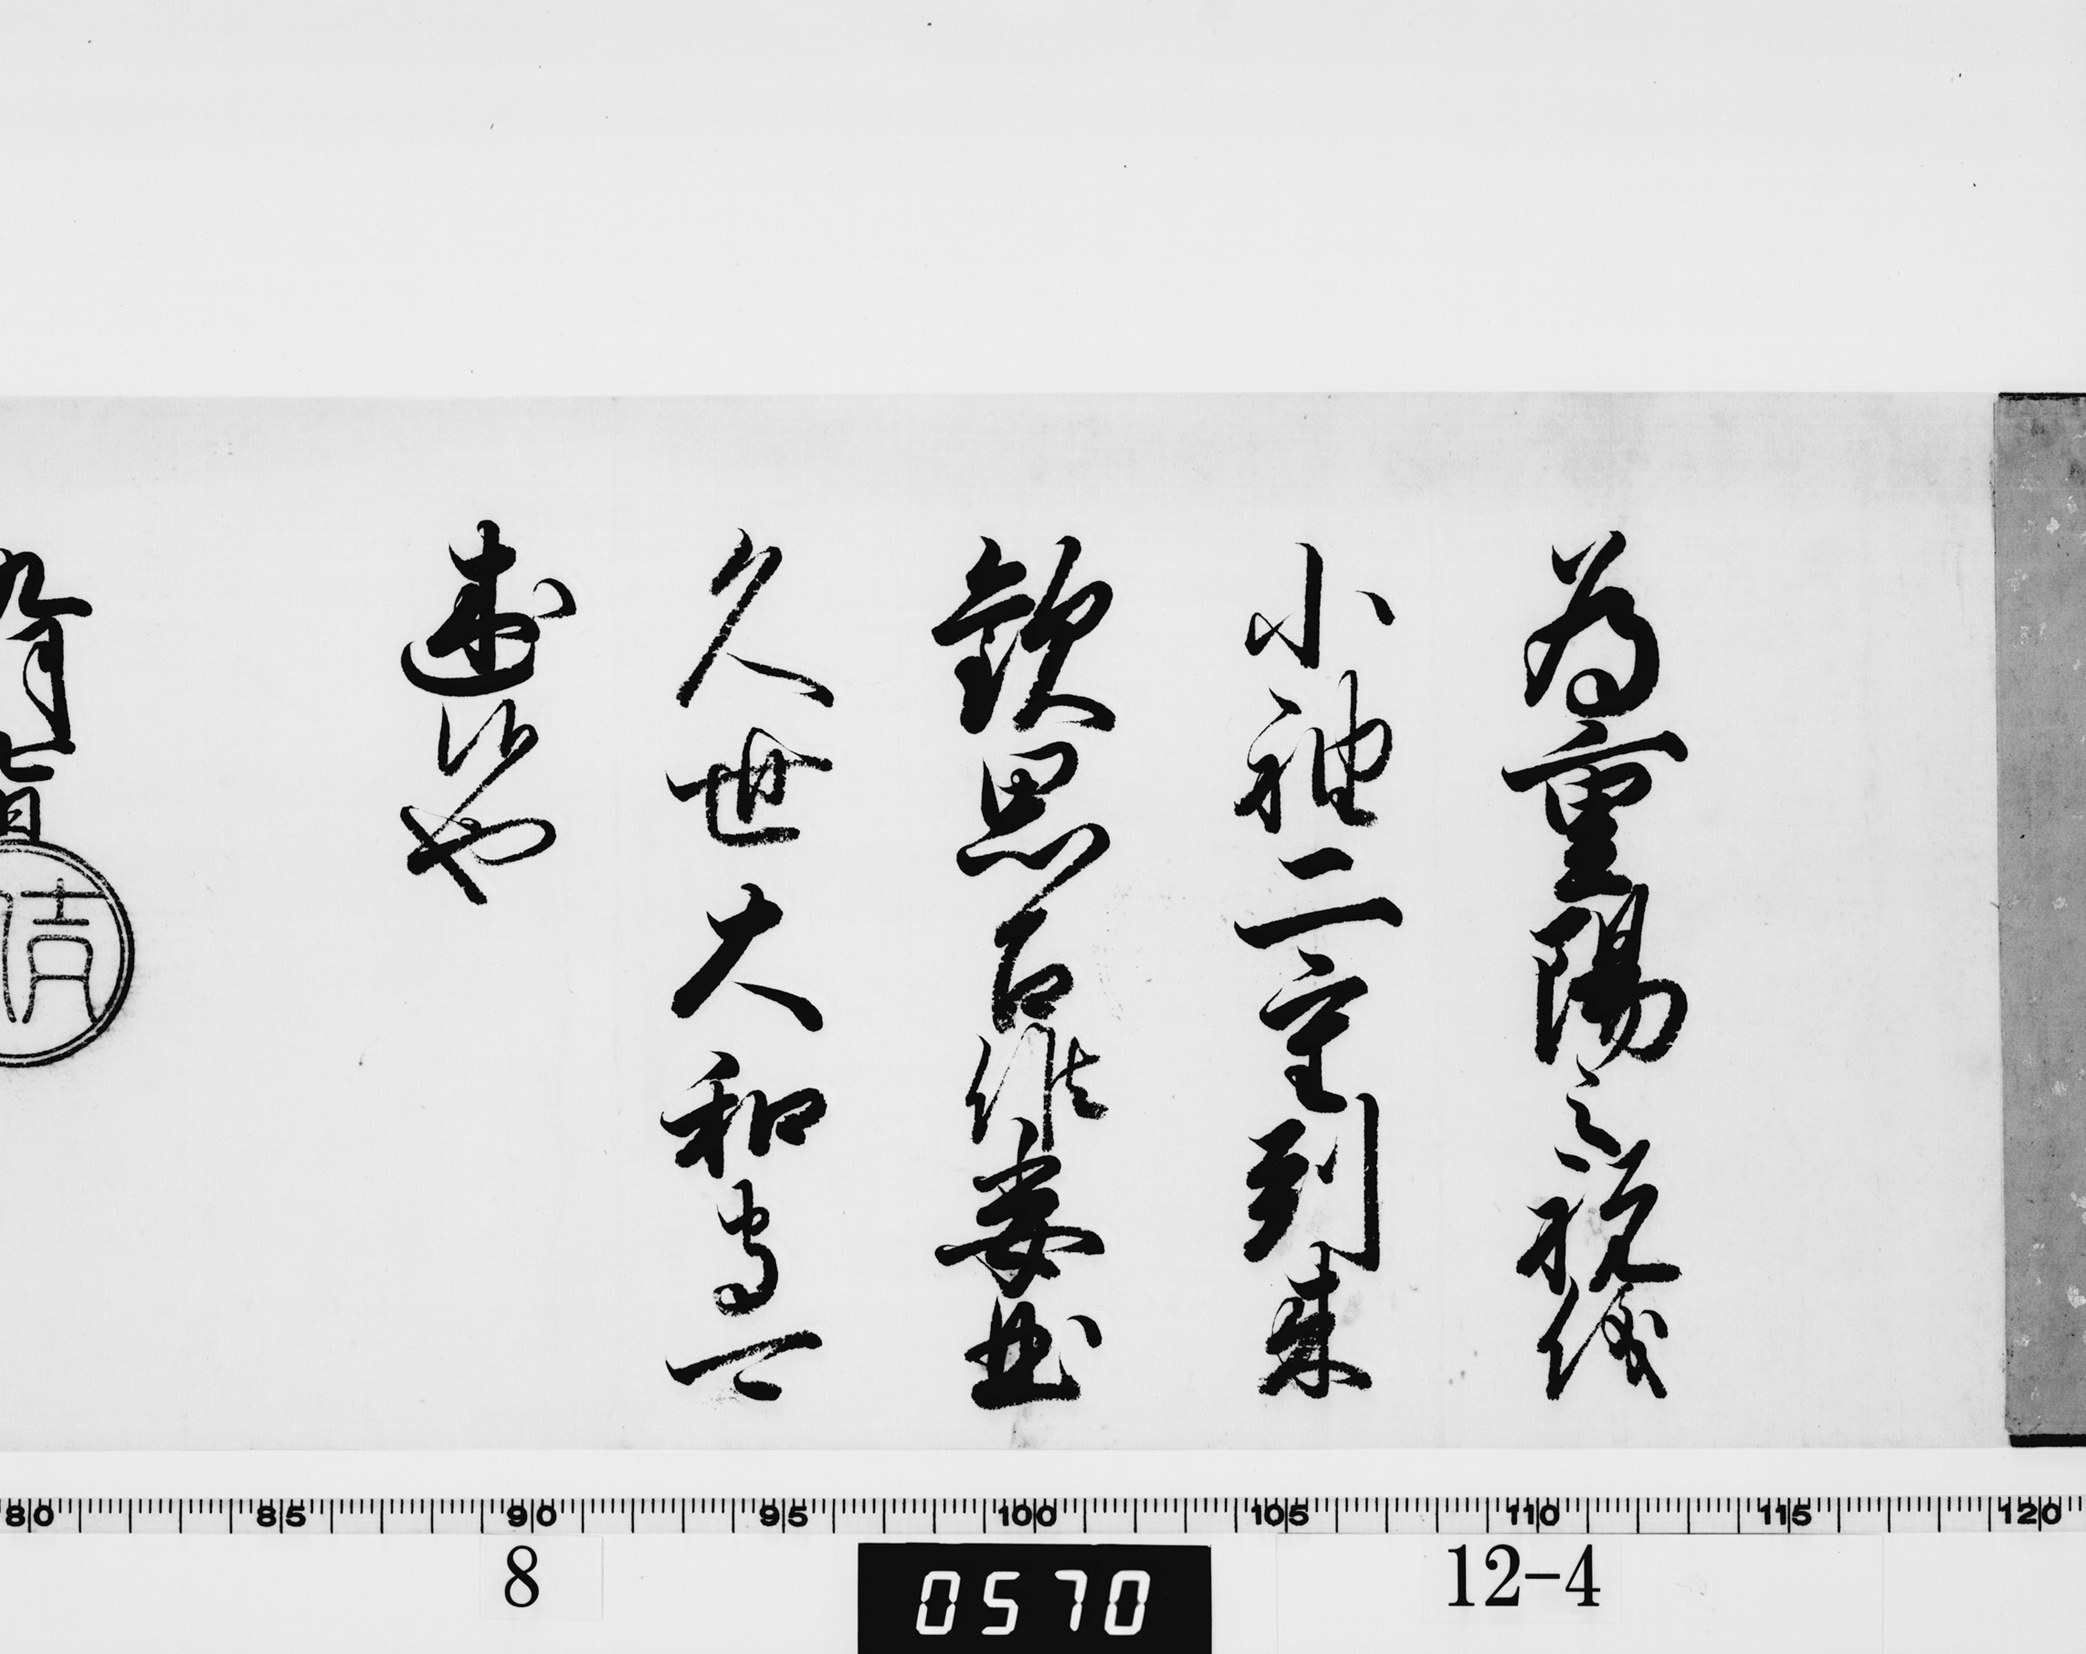 為重陽之祝儀
小袖二重到来
歓思召候委曲
久世大和守可
述候也
九月七日
吉
80 85 90 95 100 105 110 115 120
8
0570
12-4